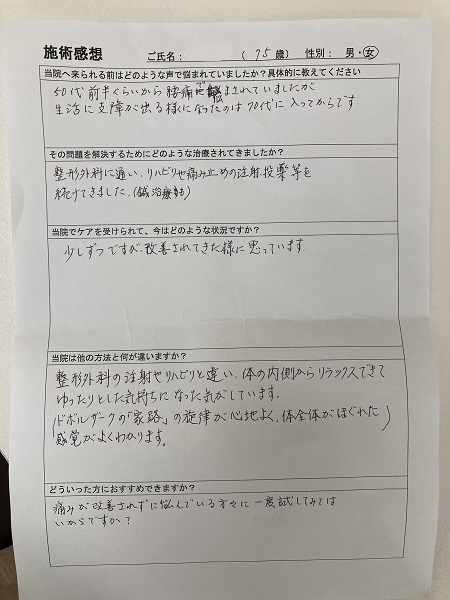 施術感想 ご氏名： （75歳） 性別： 男・女
当院へ来られる前はどのような声で悩まれていましたか？具体的に教えてください
50代前半ぐらいから腰痛に悩まされていましたが
生活に支障が出る様になったのは70代に入ってからです
その問題を解決するためにどのような治療されてきましたか？
整形外科に通い、リハビリや痛み止めの注射、投薬等を
続けてきました。（鍼治療も）
当院でケアを受けられて、今はどのような状況ですか？
少しずつですが、改善されてきた様に思っています
当院は他の方法と何が違いますか？
整形外科の注射やリハビリと違い、体の内側からリラックスできて
ゆったりとした気持ちになった気がしています。
（ドボルザークの「家路」の旋律が心地よく、体全体がほぐれた
感覚がよくわかります。）
どういった方におすすめできますか？
痛みが改善されずに悩んでいる方々に一度試してみては
いかがですか？